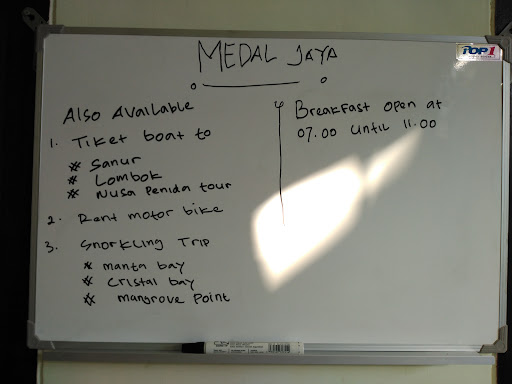 MEDAL JAYA
TOP 1
Also Available
1. Tiket boat to
* Sanur
* Lombok
* Nusa Penida tour
2. Rent motor bike
3. Snorkling Trip
* manta bay
* cristal bay
* mangrove Point
Breakfast open at
07.00 until 11.00